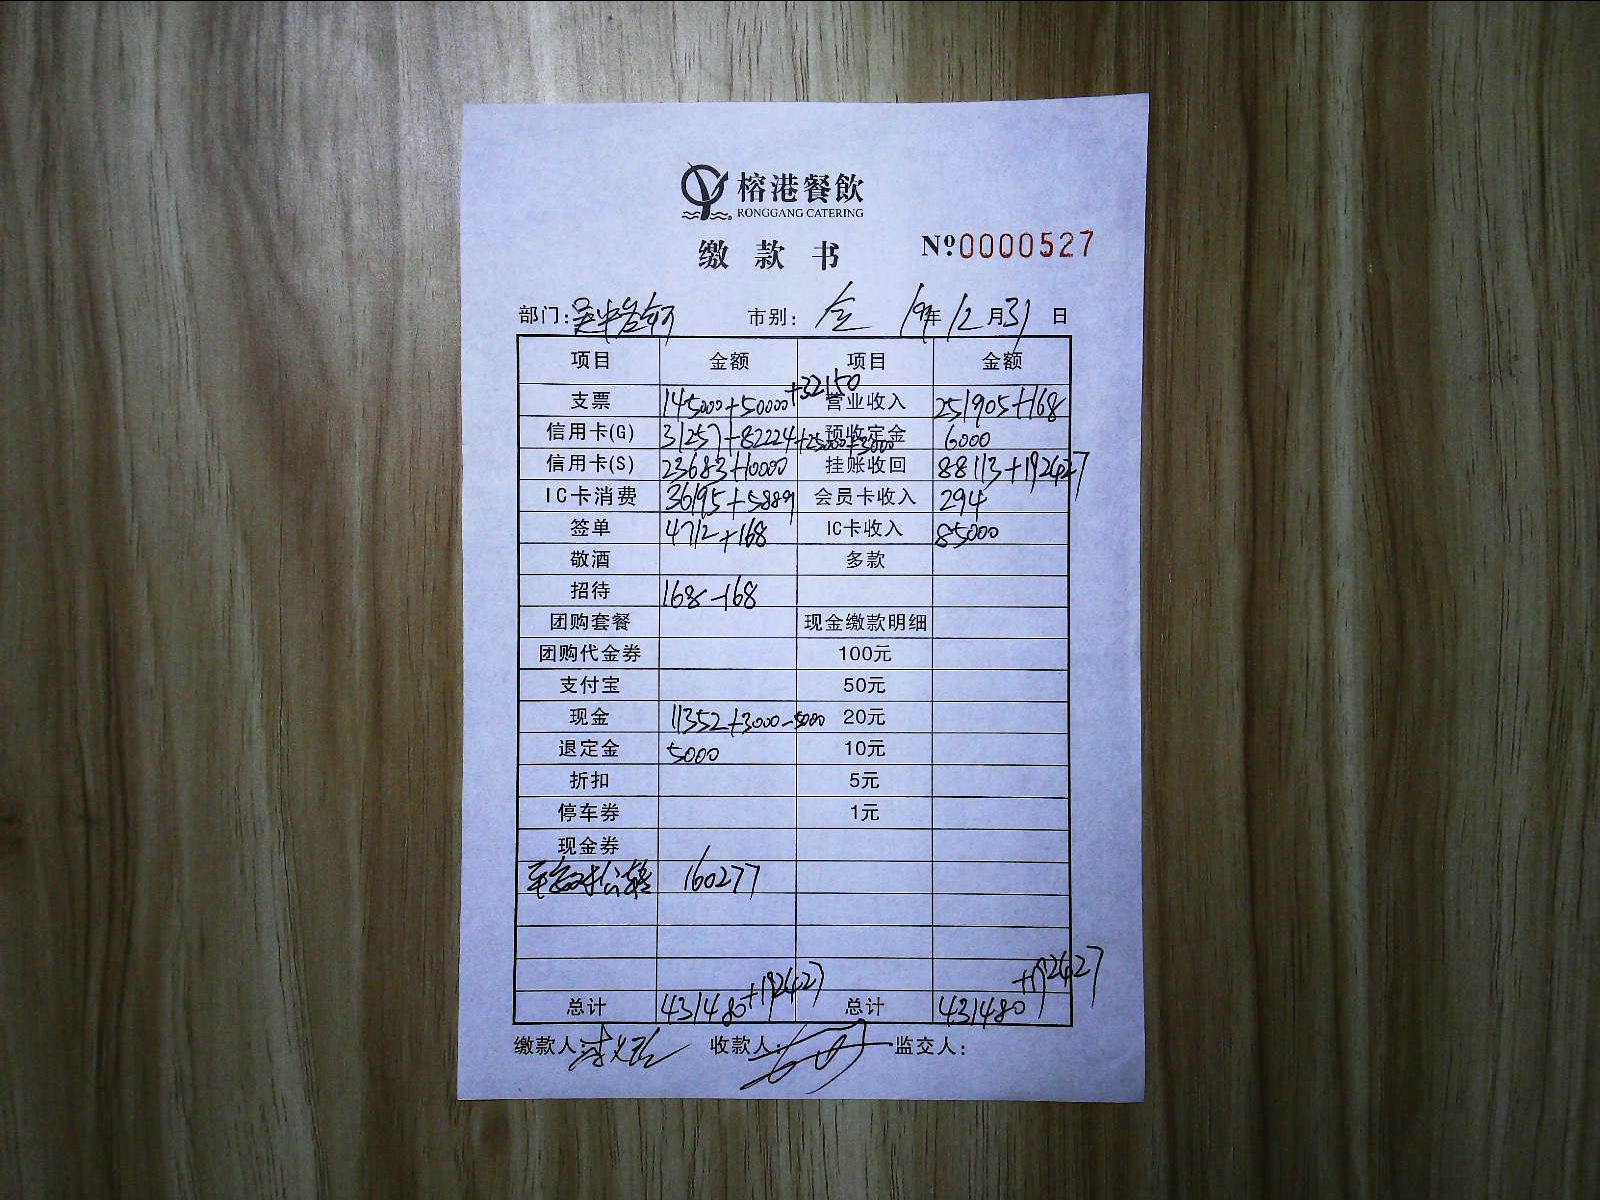 榕港餐飲
RONGGANG CATERING
缴款书 №0000527
部门: 市别: 全 19年12月31日
项目 金额 项目 金额
支票 145000+50000+32150 营业收入 251905+168
信用卡(G) 31257+82224+25000+3000 预收定金 6000
信用卡(S) 23683+10000 挂账收回 88113+192427
IC卡消费 36195+5889 会员卡收入 294
签单 4712+168 IC卡收入 85000
敬酒 多款
招待 168-168
团购套餐 现金缴款明细
团购代金券 100元
支付宝 50元
现金 11352+3000-5000 20元
退定金 5000 10元
折扣 5元
停车券 1元
现金券
160277
总计 431480+192427 总计 431480+192427
缴款人: 收款人: 监交人: